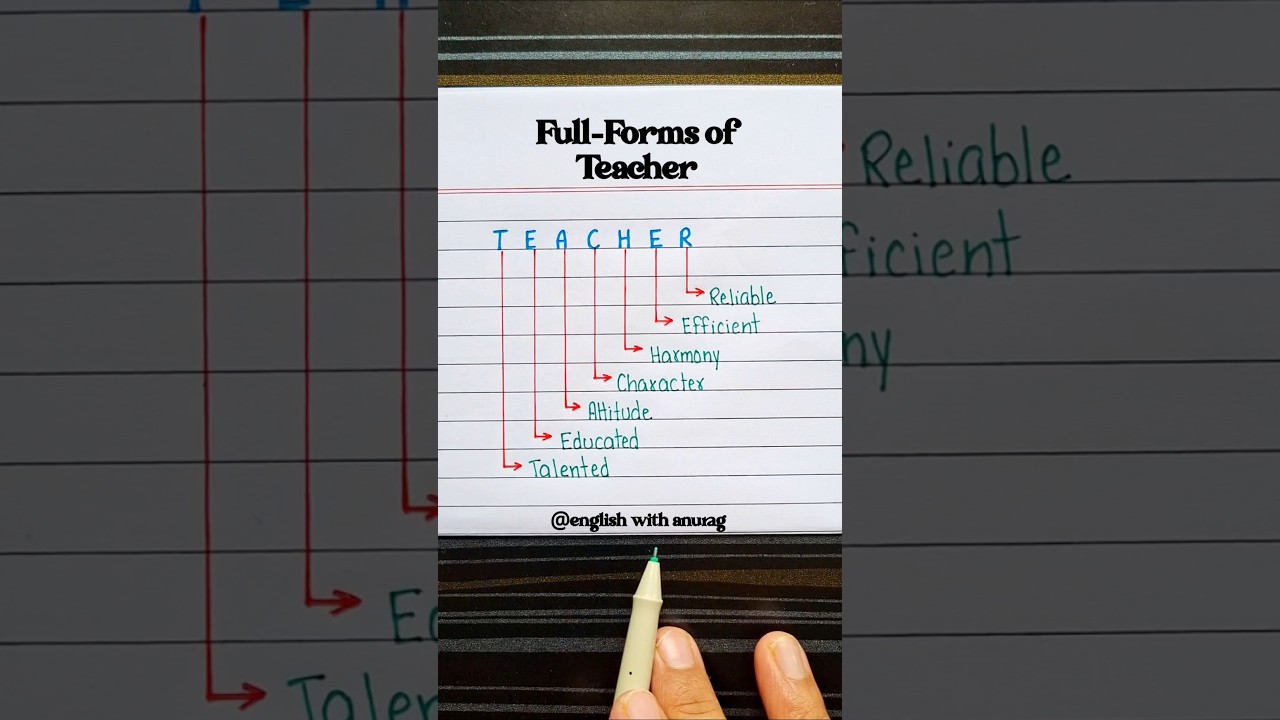 Full-Forms of
Teacher
T E A C H E R
Reliable
Efficient
Harmony
Character
Attitude
Educated
Talented
@english with anurag
Reliable
ficient
ny
Ed
Talen